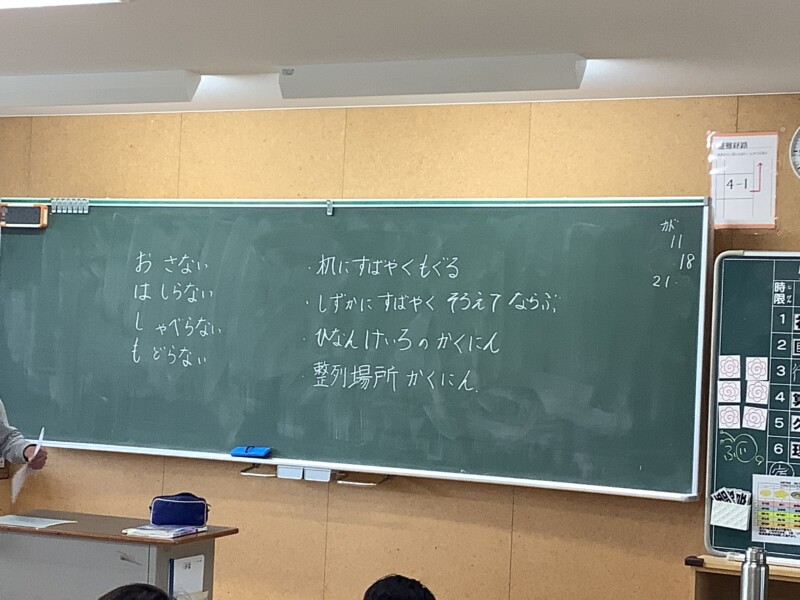 お さない
は しらない
し ゃべらない
も どらない
・机にすばやくもぐる
・しずかにすばやく そろえて ならぶ
・ひなんけいろのかくにん
・整列場所 かくにん.
11
18
21.
避難経路
4-1
時限
1
2
3
4
5
6